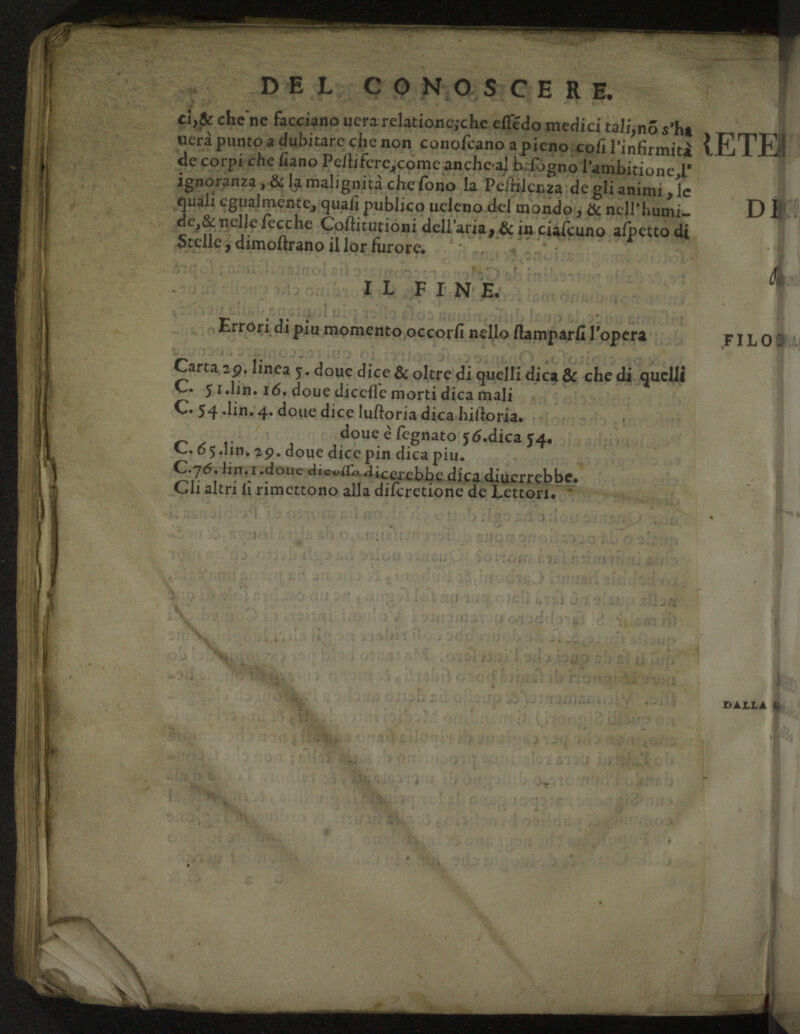 DEL CONOSCERE.
ci,& che ne facciano uera relatione;che essēdo medici tali,nō s'ha
uerà punto a dubitare che non conoscano a pieno cosi l'infirmità
de corpi che siano Pestifere,come anche al bisogno l'ambitione,l'
ignoranza, & la malignità che sono la Pestilenza de gli animi, le
quali egualmente, quasi publico ueleno del mondo, & nell'humi-
de,& nelle secche Costitutioni dell'aria, & in ciascuno aspetto di
Stelle, dimostrano il lor furore.
IL FINE.
Errori di piu momento occorsi nello stamparsi l'opera
Carta 29. linea 5. doue dice & oltre di quelli dica & che di quelli
C. 51.lin. 16. doue dicesse morti dica mali
C. 54.lin. 4. doue dice lustoria dica historia.
doue è segnato 56.dica 54.
C. 65.lin. 29. doue dice pin dica piu.
C.76.lin.1.doue dicessa dicerebbe dica diuerrebbe.
Gli altri si rimettono alla discretione de Lettori.
FILO
DALLA